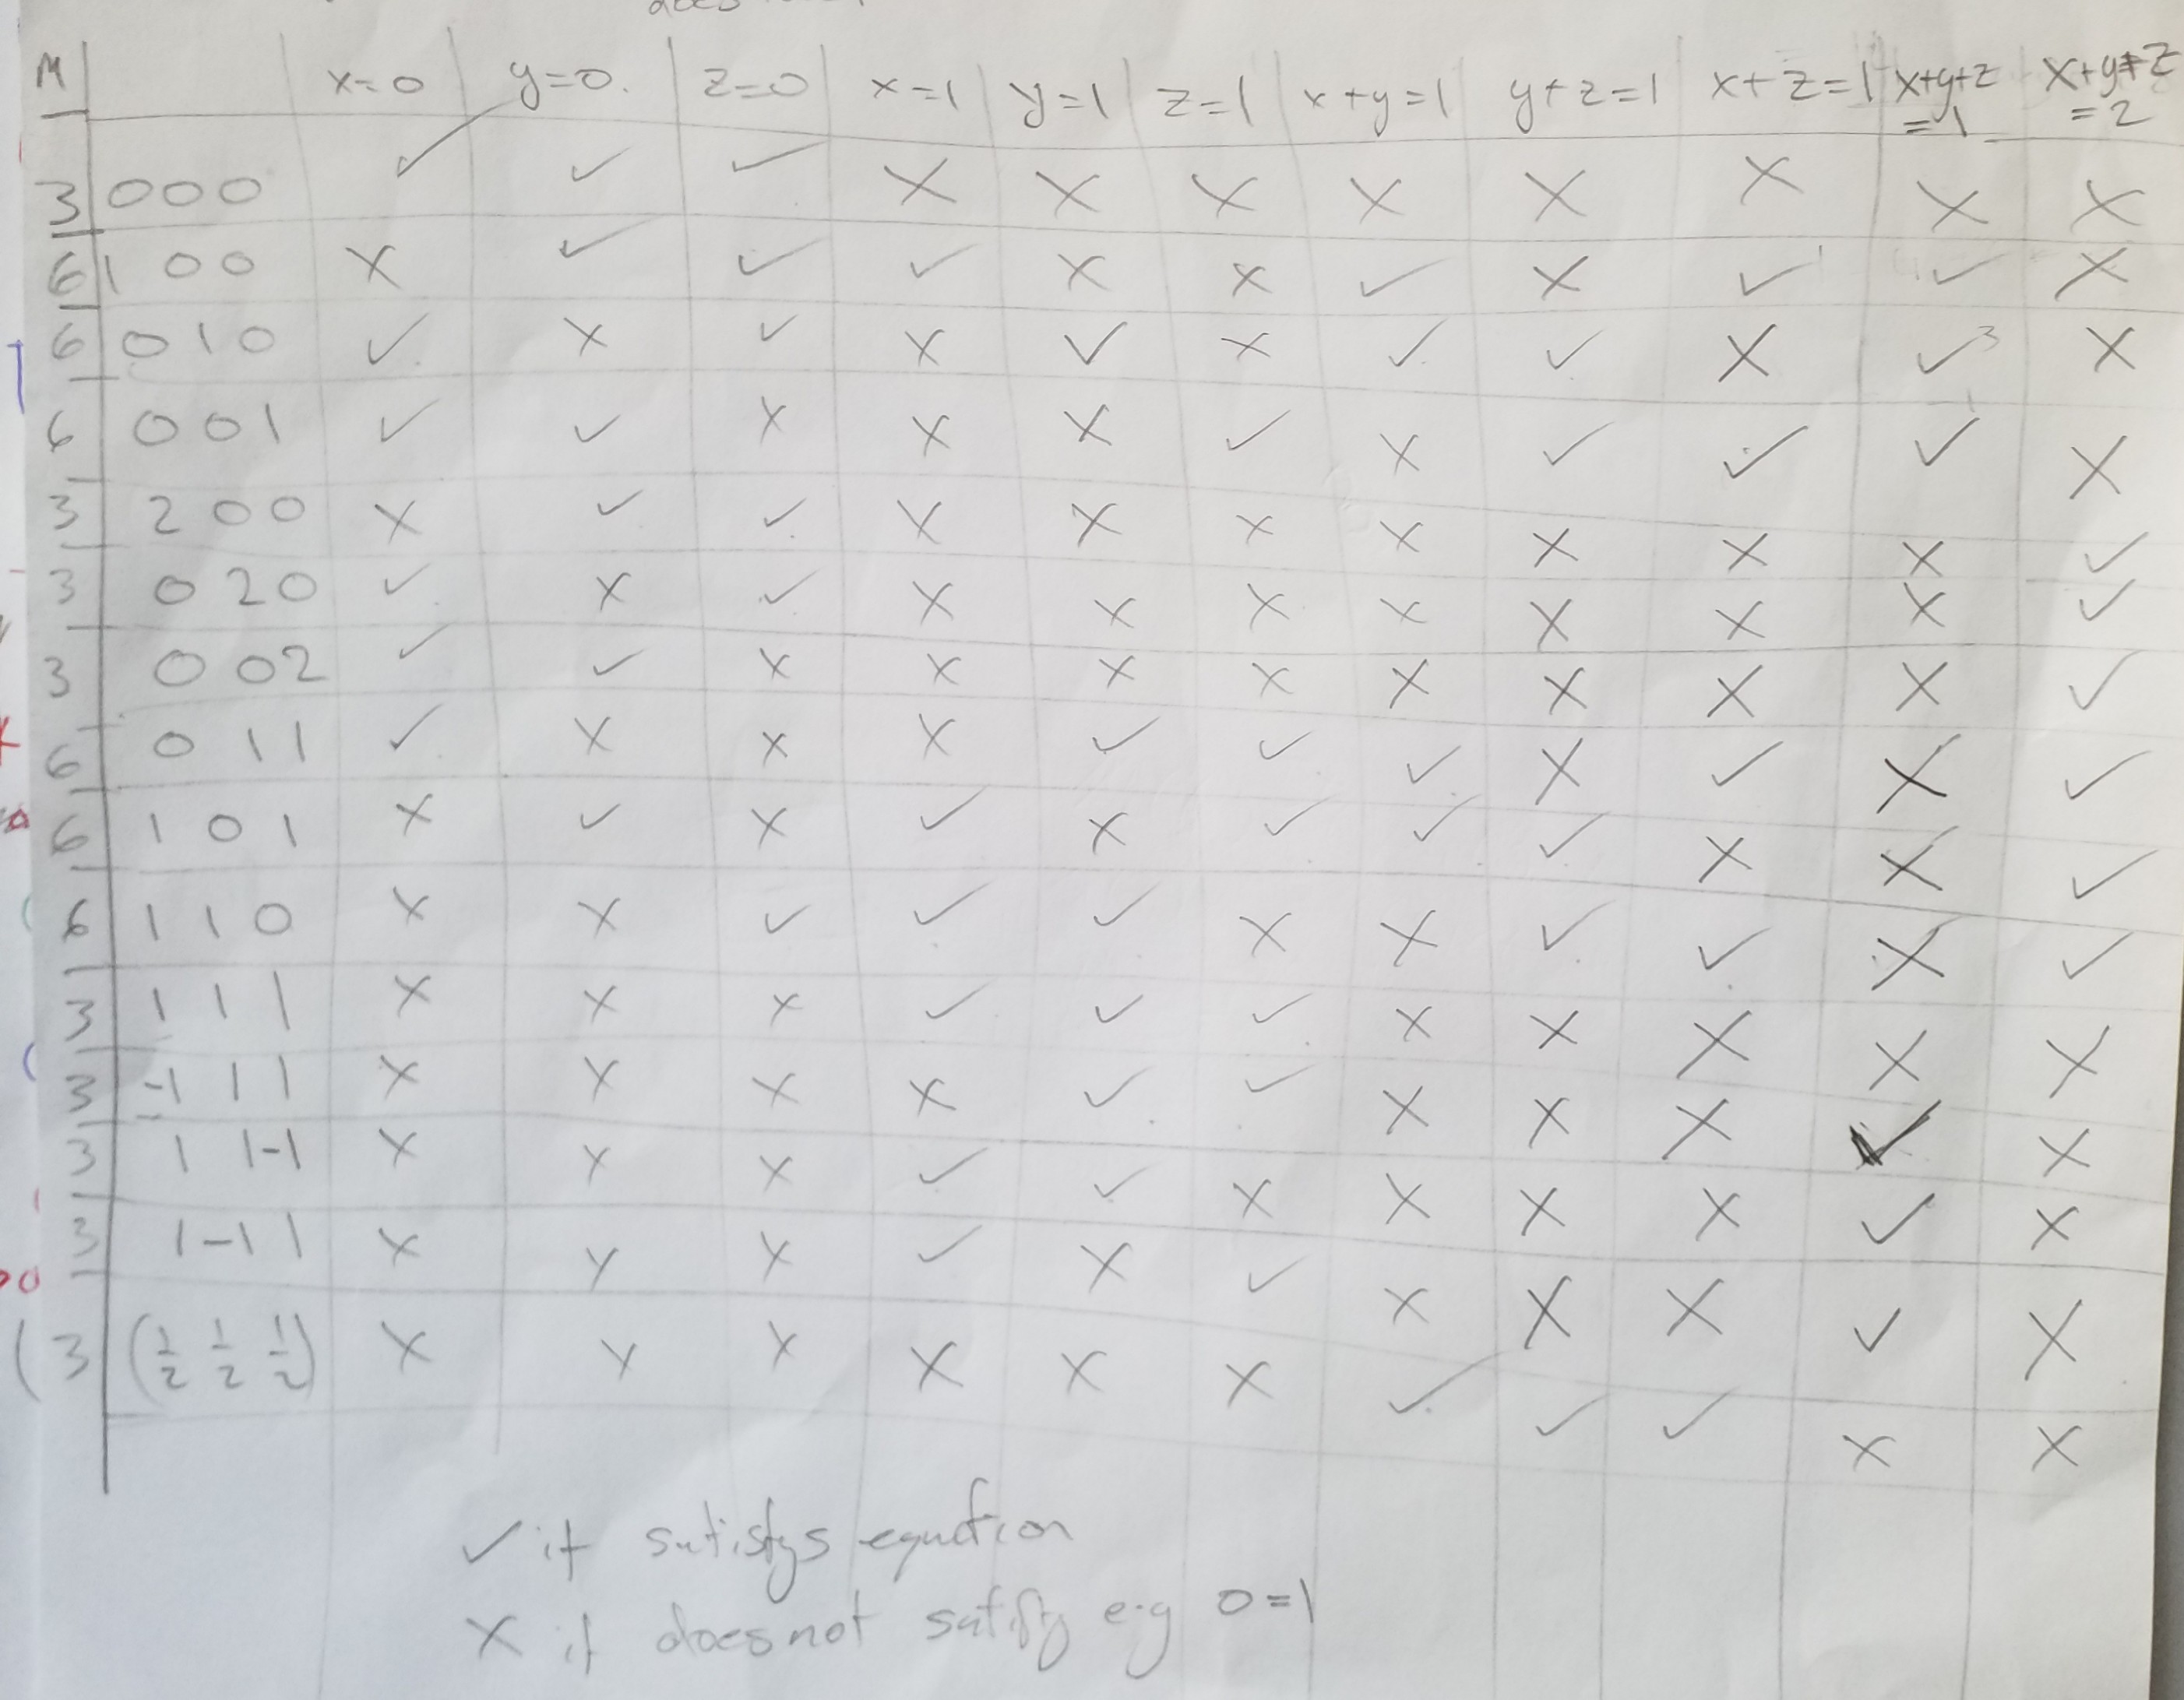 M x=0 y=0. z=0 x=1 y=1 z=1 x+y=1 y+z=1 x+z=1 x+y+z =1 x+y+z =2
3 000 ✓ ✓ ✓ X X X X X X X X
6 1 00 X ✓ ✓ ✓ X X ✓ X ✓ ✓ X
6 010 ✓ X ✓ X ✓ X ✓ ✓ X ✓ 3 X
6 001 ✓ ✓ X X X ✓ X ✓ ✓ ✓ X
3 200 X ✓ ✓ X X X X X X X ✓
3 020 ✓ X ✓ X X X X X X X ✓
3 002 ✓ ✓ X X X X X X X X ✓
6 0 11 ✓ X X X ✓ ✓ ✓ X ✓ X ✓
6 1 0 1 X ✓ X ✓ X ✓ ✓ ✓ X X ✓
6 1 1 0 X X ✓ ✓ ✓ X X ✓ ✓ X ✓
3 1 1 1 X X X ✓ ✓ ✓ X X X X X
3 -1 1 1 X X X X ✓ ✓ X X X ✓ X
3 1 1-1 X X X ✓ ✓ X X X X ✓ X
3 1-1 1 X X X ✓ X ✓ X X X ✓ X
(3 (1/2 1/2 1/2) X X X X X X ✓ ✓ ✓ X X
✓ if satisfys equation
X if does not satify e.g 0=1